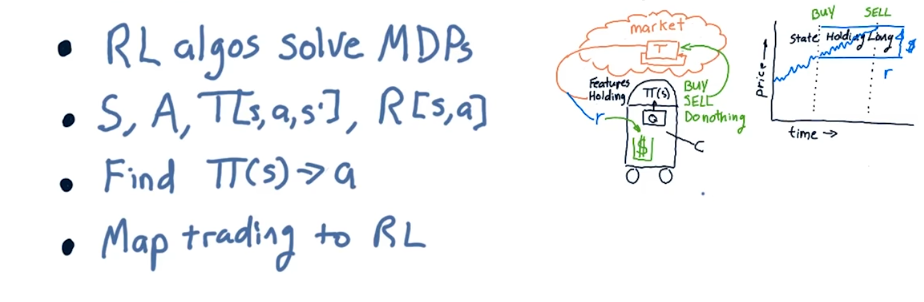 RL algos solve MDPs
S, A, T[s,a,s'], R[s,a]
Find Π(s) → a
Map trading to RL
market
T
Features
Holding
r
Π(s)
Q
$
C
BUY
SELL
Do nothing
BUY SELL
state Holding Long
$
r
price →
time →